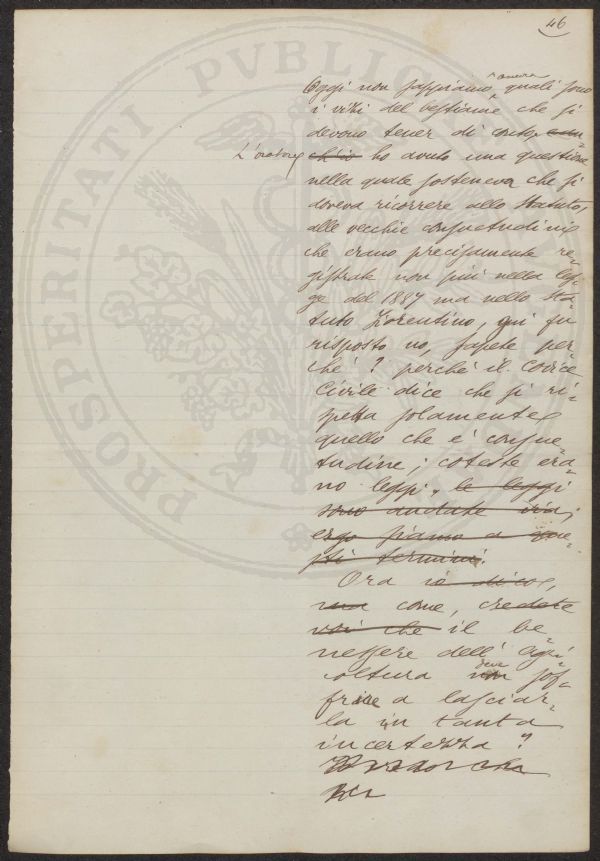 46
ancora
Oggi non sappiamo, quali sono
i vizi del bestiame che si
devono tener di conto.
L'oratore ch'io ho avuto una questione
nella quale sosteneva che si
doveva ricorrere allo Statuto,
alle vecchie consuetudini
che erano precisamente re=
gistrate non più nella leg=
ge del 1887 ma nello Sta=
tuto Fiorentino, mi fu
risposto no, sapete per
ché? perché il Codice
Civile dice che si ri=
spetta solamente
quello che è consue=
tudine; coteste era=
no leggi, le leggi
sono andate via;
ergo siamo a que=
sti termini.
Ora io dico,
ma come, credete
voi che il be=
nessere dell'agri=
deve
coltura non sof=
frire a lasciar=
la in tanta
incertezza?
PROSPERITATI PVBLICAE